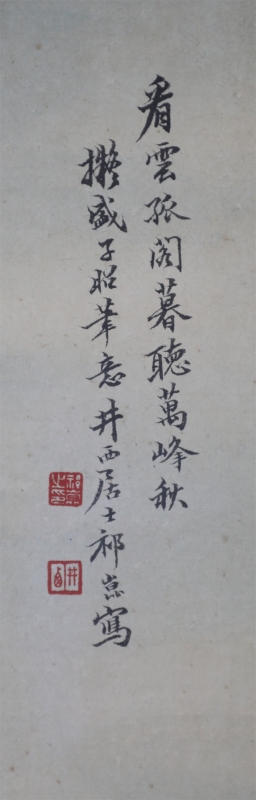 看雲孤閣暮聴萬峰秋
擬盛子昭筆意井西居士祁崑寫
井西